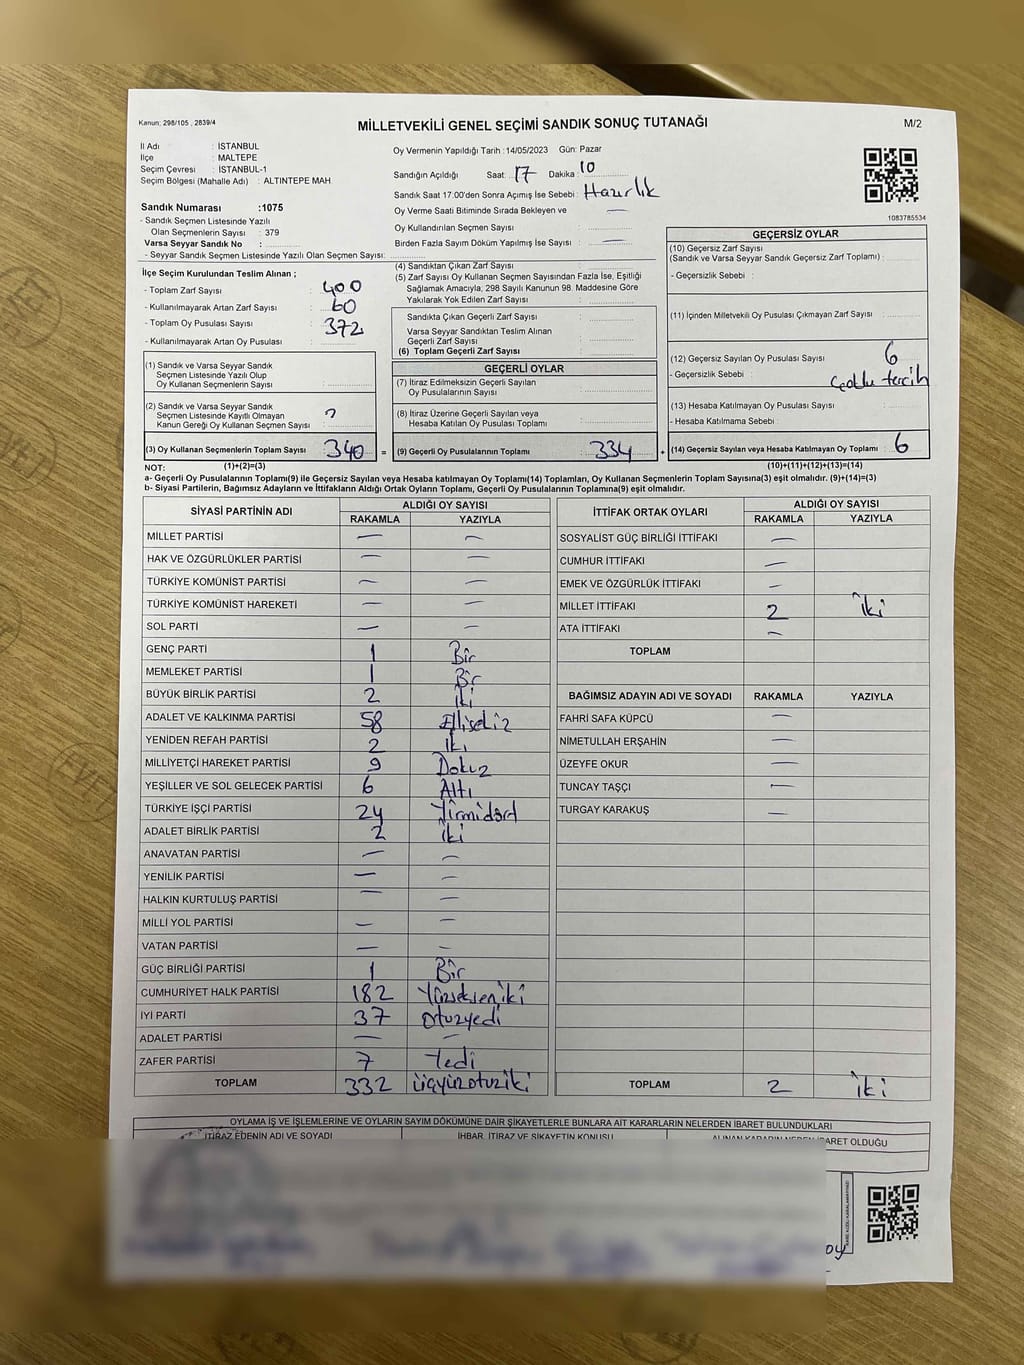 Kanun: 298/105 , 2839/4
MİLLETVEKİLİ GENEL SEÇİMİ SANDIK SONUÇ TUTANAĞI
M/2
İl Adı : İSTANBUL
İlçe : MALTEPE
Seçim Çevresi : İSTANBUL-1
Seçim Bölgesi (Mahalle Adı) : ALTINTEPE MAH.
Sandık Numarası :1075
- Sandık Seçmen Listesinde Yazılı
Olan Seçmenlerin Sayısı : 379
Varsa Seyyar Sandık No :
- Seyyar Sandık Seçmen Listesinde Yazılı Olan Seçmen Sayısı:
Oy Vermenin Yapıldığı Tarih : 14/05/2023 Gün: Pazar
Sandığın Açıldığı Saat: 17 Dakika : 10
Sandık Saat 17.00'den Sonra Açımış İse Sebebi : Hazırlık
Oy Verme Saati Bitiminde Sırada Bekleyen ve —
Oy Kullandırılan Seçmen Sayısı :
Birden Fazla Sayım Döküm Yapılmış İse Sayısı : —
1083785534
İlçe Seçim Kurulundan Teslim Alınan ;
- Toplam Zarf Sayısı : 400
- Kullanılmayarak Artan Zarf Sayısı : 60
- Toplam Oy Pusulası Sayısı : 372
- Kullanılmayarak Artan Oy Pusulası :
(1) Sandık ve Varsa Seyyar Sandık
Seçmen Listesinde Yazılı Olup
Oy Kullanan Seçmenlerin Sayısı :
(2) Sandık ve Varsa Seyyar Sandık
Seçmen Listesinde Kayıtlı Olmayan
Kanun Gereği Oy Kullanan Seçmen Sayısı :
(3) Oy Kullanan Seçmenlerin Toplam Sayısı : 340 =
(4) Sandıktan Çıkan Zarf Sayısı :
(5) Zarf Sayısı Oy Kullanan Seçmen Sayısından Fazla İse, Eşitliği
Sağlamak Amacıyla, 298 Sayılı Kanunun 98. Maddesine Göre
Yakılarak Yok Edilen Zarf Sayısı :
Sandıkta Çıkan Geçerli Zarf Sayısı :
Varsa Seyyar Sandıktan Teslim Alınan
Geçerli Zarf Sayısı :
(6) Toplam Geçerli Zarf Sayısı :
GEÇERLİ OYLAR
(7) İtiraz Edilmeksizin Geçerli Sayılan
Oy Pusulalarının Sayısı :
(8) İtiraz Üzerine Geçerli Sayılan veya
Hesaba Katılan Oy Pusulası Toplamı :
(9) Geçerli Oy Pusulalarının Toplamı : 334 +
GEÇERSİZ OYLAR
(10) Geçersiz Zarf Sayısı
(Sandık ve Varsa Seyyar Sandık Geçersiz Zarf Toplamı) :
- Geçersizlik Sebebi :
(11) İçinden Milletvekili Oy Pusulası Çıkmayan Zarf Sayısı :
(12) Geçersiz Sayılan Oy Pusulası Sayısı : 6
- Geçersizlik Sebebi : tercih
(13) Hesaba Katılmayan Oy Pusulası Sayısı :
- Hesaba Katılmama Sebebi :
(14) Geçersiz Sayılan veya Hesaba Katılmayan Oy Toplamı : 6
NOT: (1)+(2)=(3) (10)+(11)+(12)+(13)=(14)
a- Geçerli Oy Pusulalarının Toplamı(9) ile Geçersiz Sayılan veya Hesaba katılmayan Oy Toplamı(14) Toplamları, Oy Kullanan Seçmenlerin Toplam Sayısına(3) eşit olmalıdır. (9)+(14)=(3)
b- Siyasi Partilerin, Bağımsız Adayların ve İttifakların Aldığı Ortak Oyların Toplamı, Geçerli Oy Pusulalarının Toplamına(9) eşit olmalıdır.
SİYASİ PARTİNİN ADI ALDIĞI OY SAYISI
RAKAMLA YAZIYLA
MİLLET PARTİSİ — —
HAK VE ÖZGÜRLÜKLER PARTİSİ — —
TÜRKİYE KOMÜNİST PARTİSİ — —
TÜRKİYE KOMÜNİST HAREKETİ — —
SOL PARTİ — —
GENÇ PARTİ 1 Bir
MEMLEKET PARTİSİ 1 Bir
BÜYÜK BİRLİK PARTİSİ 2 İki
ADALET VE KALKINMA PARTİSİ 58 Ellisekiz
YENİDEN REFAH PARTİSİ 2 İki
MİLLİYETÇİ HAREKET PARTİSİ 9 Dokuz
YEŞİLLER VE SOL GELECEK PARTİSİ 6 Altı
TÜRKİYE İŞÇİ PARTİSİ 24 Yirmidört
ADALET BİRLİK PARTİSİ 2 İki
ANAVATAN PARTİSİ — —
YENİLİK PARTİSİ — —
HALKIN KURTULUŞ PARTİSİ — —
MİLLİ YOL PARTİSİ — —
VATAN PARTİSİ — —
GÜÇ BİRLİĞİ PARTİSİ 1 Bir
CUMHURİYET HALK PARTİSİ 182 Yüzsekseniki
İYİ PARTİ 37 Otuzyedi
ADALET PARTİSİ — —
ZAFER PARTİSİ 7 Yedi
TOPLAM 332 üçyüzotuziki
İTTİFAK ORTAK OYLARI ALDIĞI OY SAYISI
RAKAMLA YAZIYLA
SOSYALİST GÜÇ BİRLİĞİ İTTİFAKI —
CUMHUR İTTİFAKI —
EMEK VE ÖZGÜRLÜK İTTİFAKI —
MİLLET İTTİFAKI 2 İki
ATA İTTİFAKI —
TOPLAM
BAĞIMSIZ ADAYIN ADI VE SOYADI RAKAMLA YAZIYLA
FAHRİ SAFA KÜPCÜ —
NİMETULLAH ERŞAHİN —
ÜZEYFE OKUR —
TUNCAY TAŞÇI —
TURGAY KARAKUŞ —
TOPLAM 2 İki
OYLAMA İŞ VE İŞLEMLERİNE VE OYLARIN SAYIM DÖKÜMÜNE DAİR ŞİKAYETLERLE BUNLARA AİT KARARLARIN NELERDEN İBARET BULUNDUKLARI
İTİRAZ EDENİN ADI VE SOYADI İHBAR, İTİRAZ VE ŞİKAYETİN KONUSU ALINAN KARARIN NEDEN İBARET OLDUĞU
oy